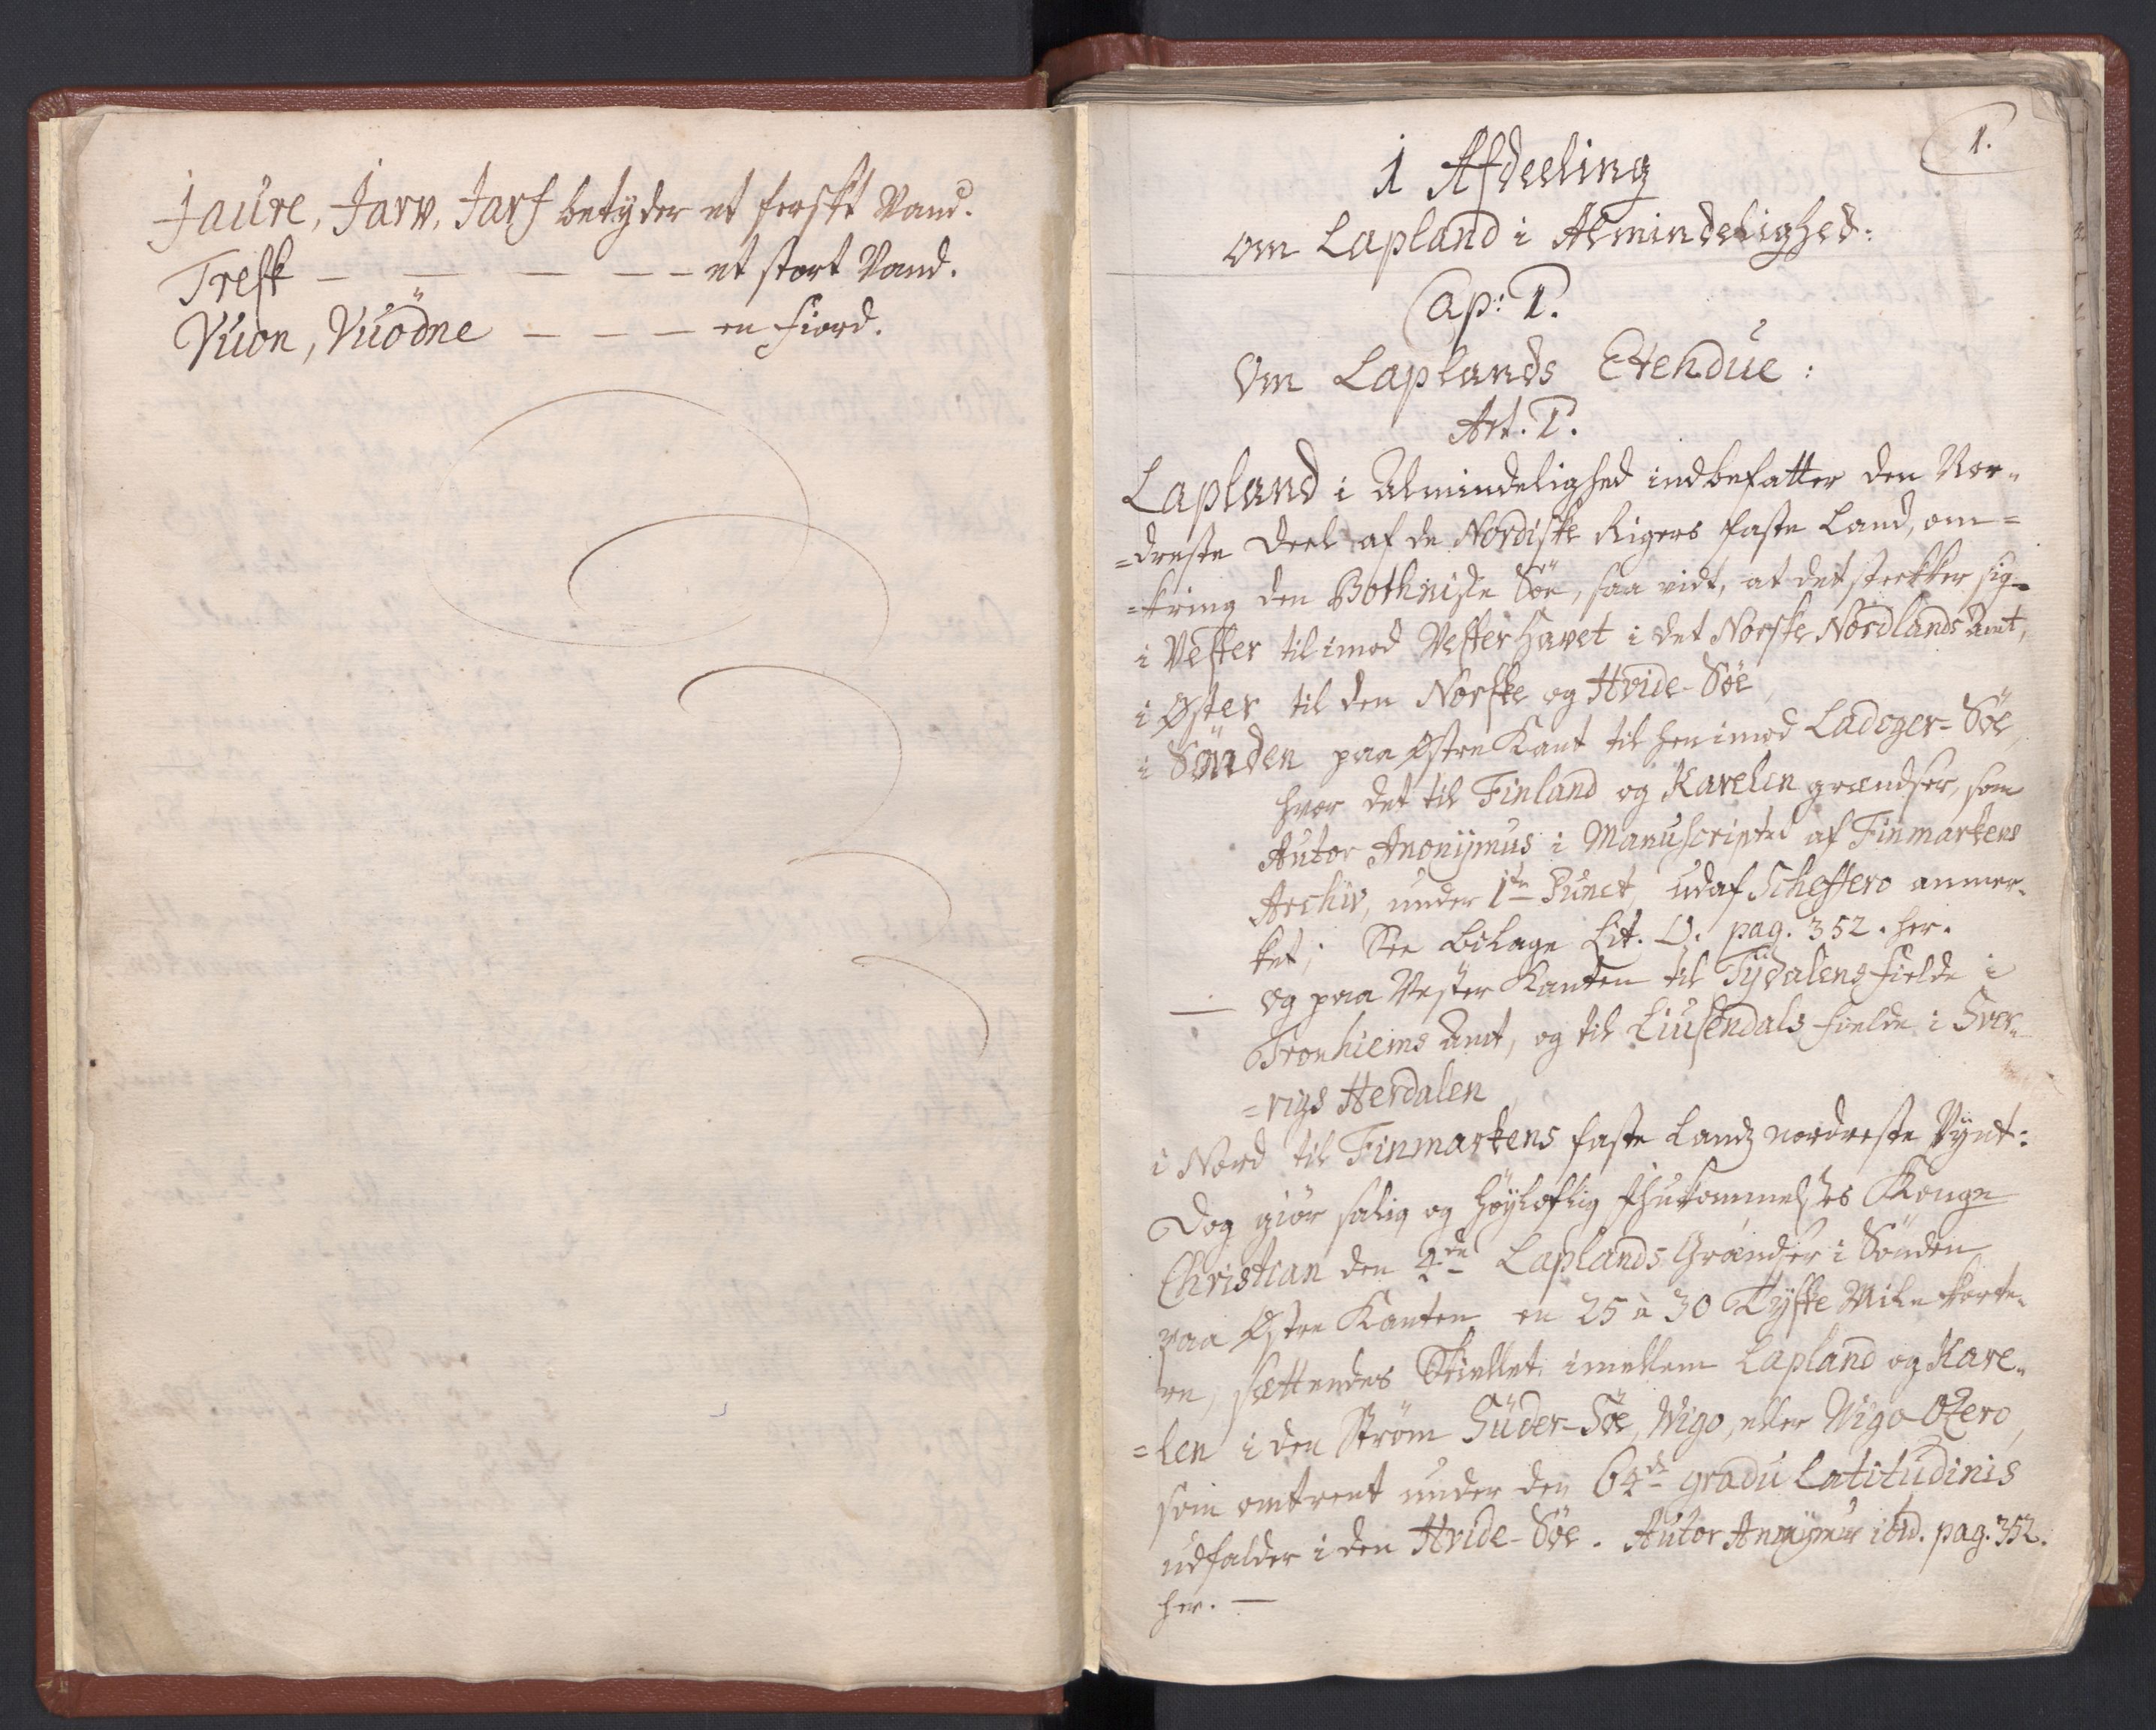 Jaure, Jarw, Jarf betyder et ferskt Vand.
Tresk — — — — — et stort Vand.
Vuon, Vuödne — — — en Fiord.
1.
1 Afdeeling
om Lapland i Almindelighed:
Cap: 1.
Om Laplands Etendue:
Art. 1.
Lapland i Almindelighed indbefatter den Nor-
=dreste Deel af de Nordiske Rigers faste Land, om=
=kring den Bothniske Söe, saa vidt, at det strekker sig
i Vester til imod Vesterhavet i det Norske Nordlands Amt,
i Øster til den Norske og Hvide-Söe
i Sönden paa Østre Kant til hen imod Ladoger-Söe,
hvor det til Finland og Karelen grændser, som
Autor Anonymus i Manuscriptet af Finmarkens
Archiv, under 1te Punct, udaf Scheffero anmer-
ket; See Bilage Lit. O. pag. 352. her.
— og paa Vester Kanten til Tydalens Fielde i
Tronhiems Amt, og til Liusendals Fielde i Sver-
=rigs Herdalen
i Nord til Finmarkens faste Lands nordreste Pynt:
Dog giør salig og Høylovlig Ihukommelses Konge
Christian den 4de Laplands Grændser i Sönden
paa Østre Kanten en 25 à 30 Tyske Mile korte-
re, settendes Skiellet imellem Lapland og Kare-
=len i den Strøm Süder-Söe, Wigo, eller Wigo-Ozero,
som omtrent under den 64de gradu Latitudinis
udfalder i den Hvide-Söe. Autor Anonymus ibid. pag. 352.
her. —